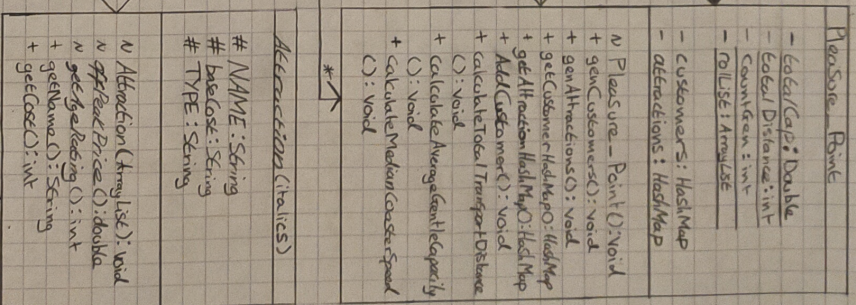 Pleasure_Point
- totalCap: Double
- totalDistance: int
- countGen: int
- rolList: ArrayList
- customers: HashMap
- attractions: HashMap
~ Pleasure_Point(): void
+ genCustomers(): void
+ genAttractions(): void
+ getCustomerHashMap(): HashMap
+ getAttractionHashMap(): HashMap
+ AddCustomer(): void
+ calculateTotalTransportDistance
(): void
+ calculateAverageGentleCapacity
(): void
+ calculateMedianCoasterSpeed
(): void
*
Attraction (italics)
# NAME: String
# baseCost: String
# TYPE: String
~ Attraction(ArrayList): void
~ offPeakPrice(): double
~ getAgeRating(): int
+ getName(): String
+ getCost(): int